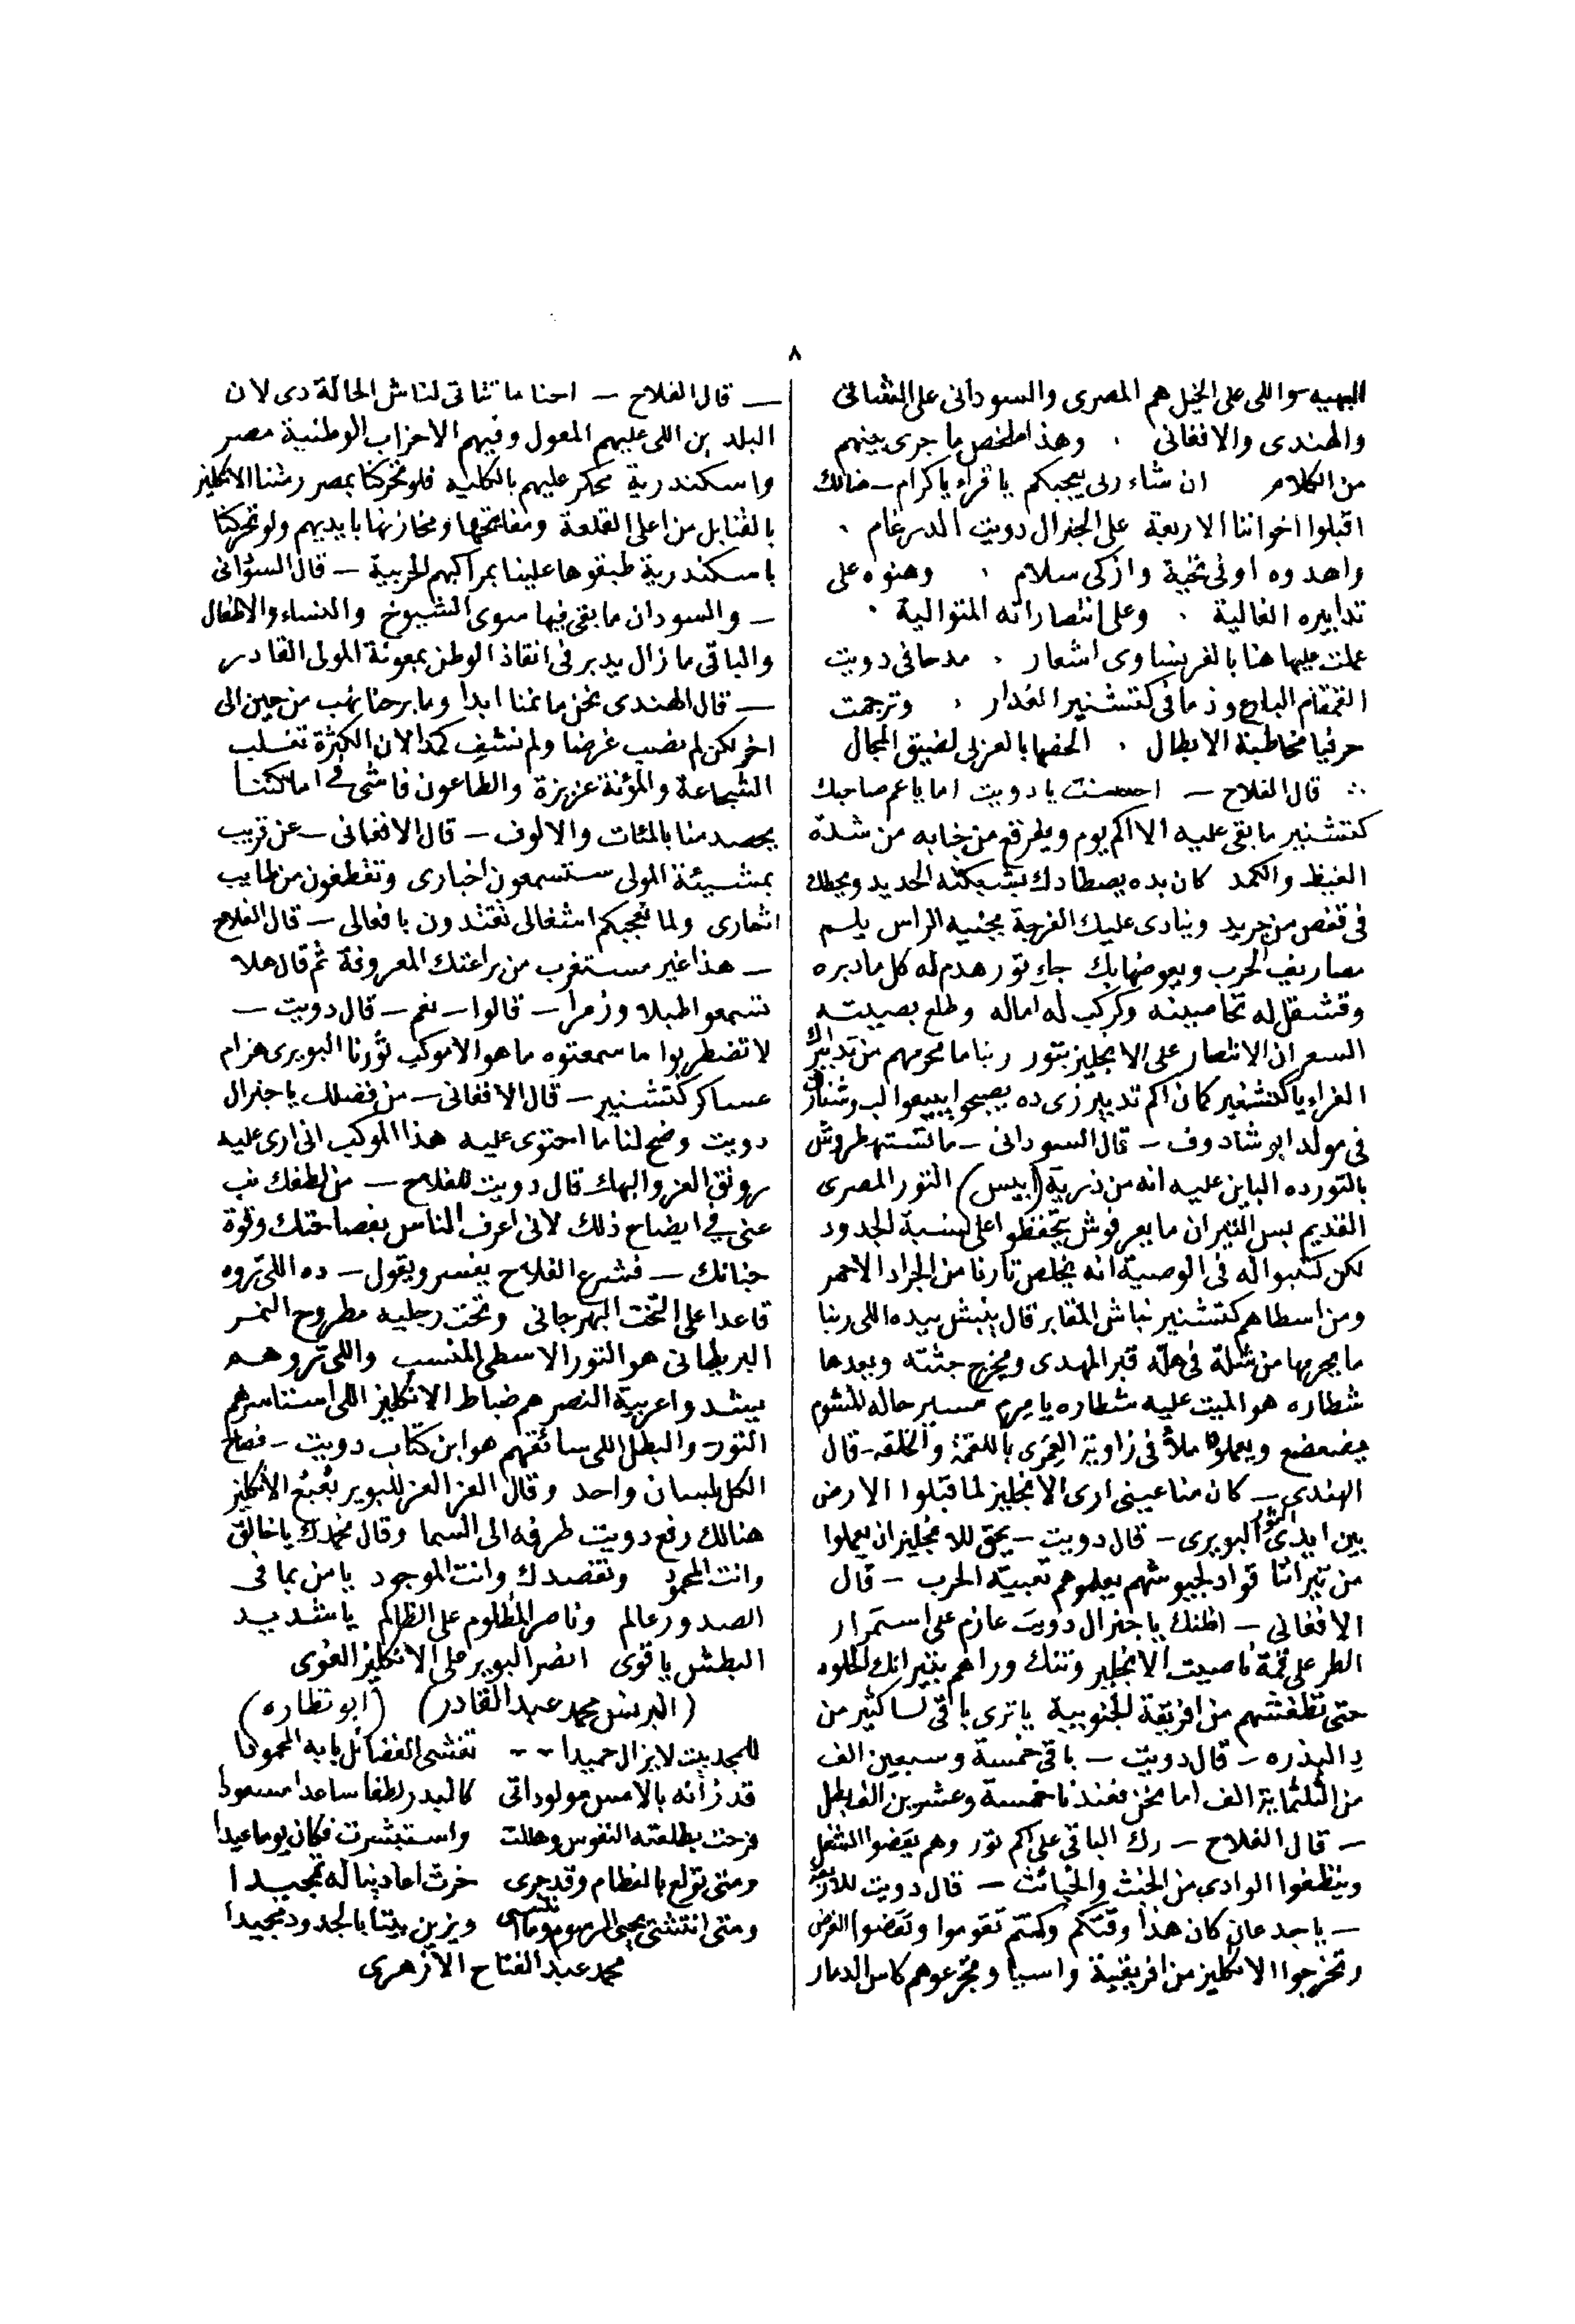 ٨
البهيه – واللى على الخيل هم المصرى والسودانى على الشمالى
والهندى والافغانى . وهذا ملخص ما جرى بينهم
من الكلام ان شاء ربى يعجبكم يا قراء يا كرام –
اقبلوا اخواننا الاربعة على الجنرال دويت الدرغام .
واهدوه اوفى تحية وازكى سلام . وهنوه على
تدابيره العالية . وعلى انتصاراته المتوالية .
عملت عليها هنا بالفرنساوى اشعار . مدحا فى دويت
القمقام البارع وذما فى كتشنير الغدار . وترجمت
حرفيا مخاطبة الابطال . الخصها بالعربى لضيق المجال
∴ قال الفلاح – احسنت يا دويت اما يا عم صاحبك
كتشنير ما بقى عليه الا اكم يوم ويطرقع من جنابه من شدة
الغيظ والكمد كان بده يصطادك بشبكته الحديد ويحطك
فى قفص من جريد وينادى عليك الفرجة بجنيه الراس يلم
مصاريف الحرب ويعوضها بك جاء تور هدم له كل ما دبره
وقشقل له تخاصينه وكركب له اماله وطلع بصيته
السعران الانتصار على الانجليز بتور ربنا ما يحرمهم من تدابيرك
الغراء يا كتشنير كمان اكم تدبير زى ده يصبحوا يبيعوا لب وشنان
فى مولد ابو شادوف – قال السودانى – ما تستهطروش
بالتور ده الباين عليه انه من ذرية (ابيس) التور المصرى
القديم بس التيران ما يعرفوش يحفظوا على نسبة الجدود
لكن كتبوا له فى الوصية انه يخلص تارنا من الجراد الاحمر
ومن اسطاهم كتشنير نباش المقابر قال ينبش بيده اللى ربنا
ما يحرمها من شلة فى هلة قبر المهدى ويخرج جثته وبعدها
شطاره هو الميت عليه شطاره يا مرم مسير حاله للشوم
يضعضع ويعملوها ملأ فى زاوية العمى باللقمة والخلقه – قال
الهندى – كان منا عينى ارى الانجليز لما قبلوا الارض
بين ايدى التور البويرى – قال دويت – يحق للانجليز ان يعملوا
من تيرانا قواد لجيوشهم يعلموهم تعبية الحرب – قال
الافغانى – اظنك يا جنرال دويت عازم على استمرار
الطر على قمة ناصيت الانجليز وتنك وراهم بتيرانك الحلوه
حتى تطفشهم من افريقة الجنوبية يا ترى باقى لسا كثير من
دِ البذره – قال دويت – باقى خمسة وسبعين الف
من الثلثماية الف اما نحن فعندنا خمسة وعشرين الف بطل
– قال الفلاح – رك الباقى على اكم تور وهم يقضوا الشغل
وينظفوا الوادى من الخبث والخبائث – قال دويت للاربعة
– يا جدعان كان هذا وقتكم وكنتم تقوموا وتقضوا الغرض
وتخرجوا الانكليز من افريقية واسيا وتجرعوهم كاس الدمار
— قال الفلاح – احنا ما تتاتى لناش الحالة دى لان
البلدين اللى عليهم المعول وفيهم الاحزاب الوطنية مصر
واسكندرية محكر عليهم بالكليه فلو تحركنا بمصر رشنا الانكليز
بالقنابل من اعلى القلعة ومفاتيحها ومخازنها بايديهم ولو تحركنا
باسكندرية طبقوها علينا بمراكبهم الحربية – قال السودانى
– والسودان ما بقى فيها سوى الشيوخ والنساء والاطفال
والباقى ما زال يدبر فى انقاذ الوطن بمعونة المولى القادر
— قال الهندى نحن ما نمنا ابدا وما برحنا نهب من حين الى
اخر لكن لم نصب غرضا ولم نشفِ كمدا لان الكثرة تغلب
الشجاعة والمؤنة عزيزة والطاعون فاشى فى اماكننا
يحصد منا بالمئات والالوف – قال الافغانى – عن قريب
بمشيئة المولى ستسمعون اخبارى وتقطفون من اطايب
اثمارى ولما تعجبكم اشغالى تقتدون بافعالى – قال الفلاح
– هذا غير مستغرب من براعتك المعروفة ثم قال هلا
تسمعوا طبلا وزمرا – قالوا – نعم – قال دويت –
لا تضطربوا ما سمعتوه ما هو الا موكب تورنا البويرى هزام
عساكر كتشنير – قال الافغانى – من فضلك يا جنرال
دويت وضح لنا ما احتوى عليه هذا الموكب انى ارى عليه
رونق العز والبهاء قال دويت للفلاح – من لطفك نب
عنى فى ايضاح ذلك لانى اعرف الناس بفصاحتك وقوة
جنانك – فشرع الفلاح يفسر ويقول – ده اللى تروه
قاعدا على التخت البهرجانى وتحت رجليه مطروح النمر
البريطانى هو التور الاسطى المنسب واللى تروهم
بيشدوا عربية النصر هم ضباط الانكليز اللى استاسرهم
التور – والبطل اللى سائقهم هو ابن كتاب دويت – فصاح
الكل بلسان واحد وقال العز العز للبوير بُعبُع الانكليز
هنالك رفع دويت طرفه الى السما وقال نحمدك يا خالق
وانت المحمود ونقصدك وانت الموجود يا من بما فى
الصدور عالم وناصر المظلوم على الظالم يا شديد
البطش يا قوى انصر البوير على الانكليز الغوى
(البرنس محمد عبد القادر) (ابو نظاره)
للمجد بيت لا يزال حميدا -- تغشى الفضائل بابه المحمودا
قد زانه بالامس مولود اتى كالبدر لطفا ساعدا مسعودا
فرحت بطلعته النفوس وهللت واستبشرت فكان يوما عيدا
ومتى تولع بالفطام وقد جرى خرت اعادينا له تمجيدا
ومتى انتشى يحيى المرسوم وما نسى ويزين بيتا بالجدود مجيدا
محمد عبد الفتاح الازهرى